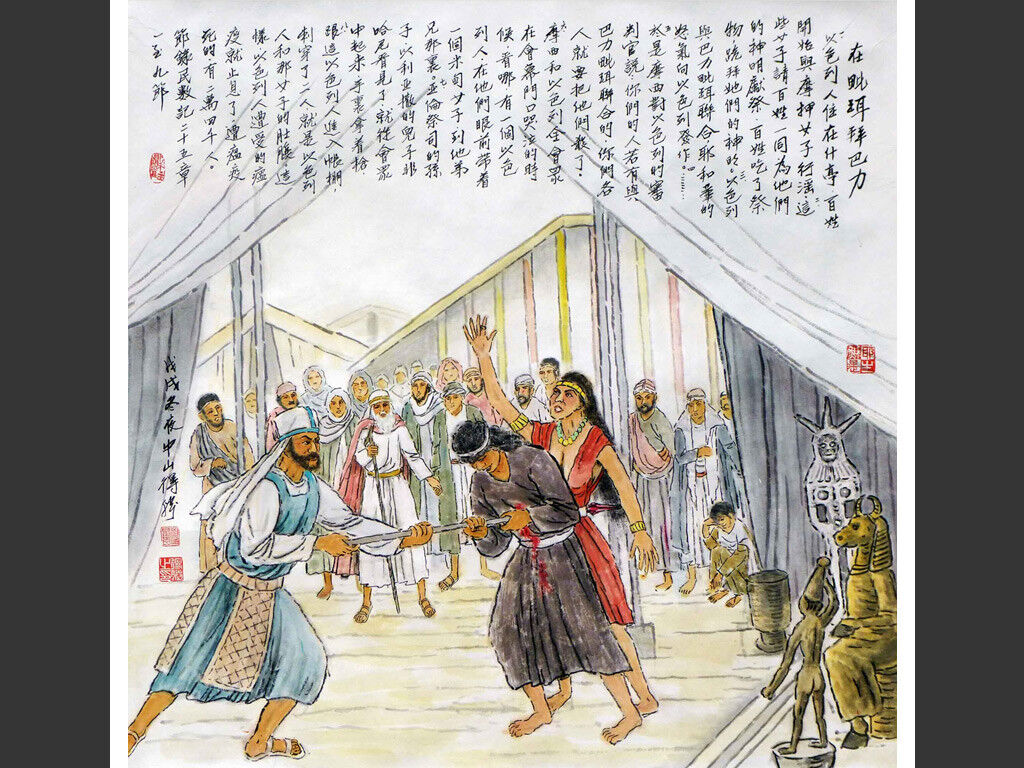 在毗珥拜巴力
以色列人住在什亭百姓
開始與摩押女子行淫這
些女子請百姓一同為他們
的神明獻祭百姓吃了祭
物跪拜她們的神明以色列
與巴力毗珥聯合耶和華的
怒氣向以色列發作……
於是摩西對以色列的審
判官說你們的人若有與
巴力毗珥聯合的你們各
人就要把他們殺了
摩西和以色列全會眾
在會幕門口哭泣的時
候看哪有一個以色
列人在他們眼前帶着
一個米甸女子到他弟
兄那裏亞倫祭司的孫
子以利亞撒的兒子非
哈尼看見了就從會眾
中起來手裏拿着槍
跟這以色列人進入帳棚
刺穿了二人就是以色列
人和那女子的肚腹這
樣以色列人遭受的瘟
疫就止息了遭瘟疫
死的有二萬四千人。
節錄民數記二十五章
一至九節
戊戌冬夜中山得